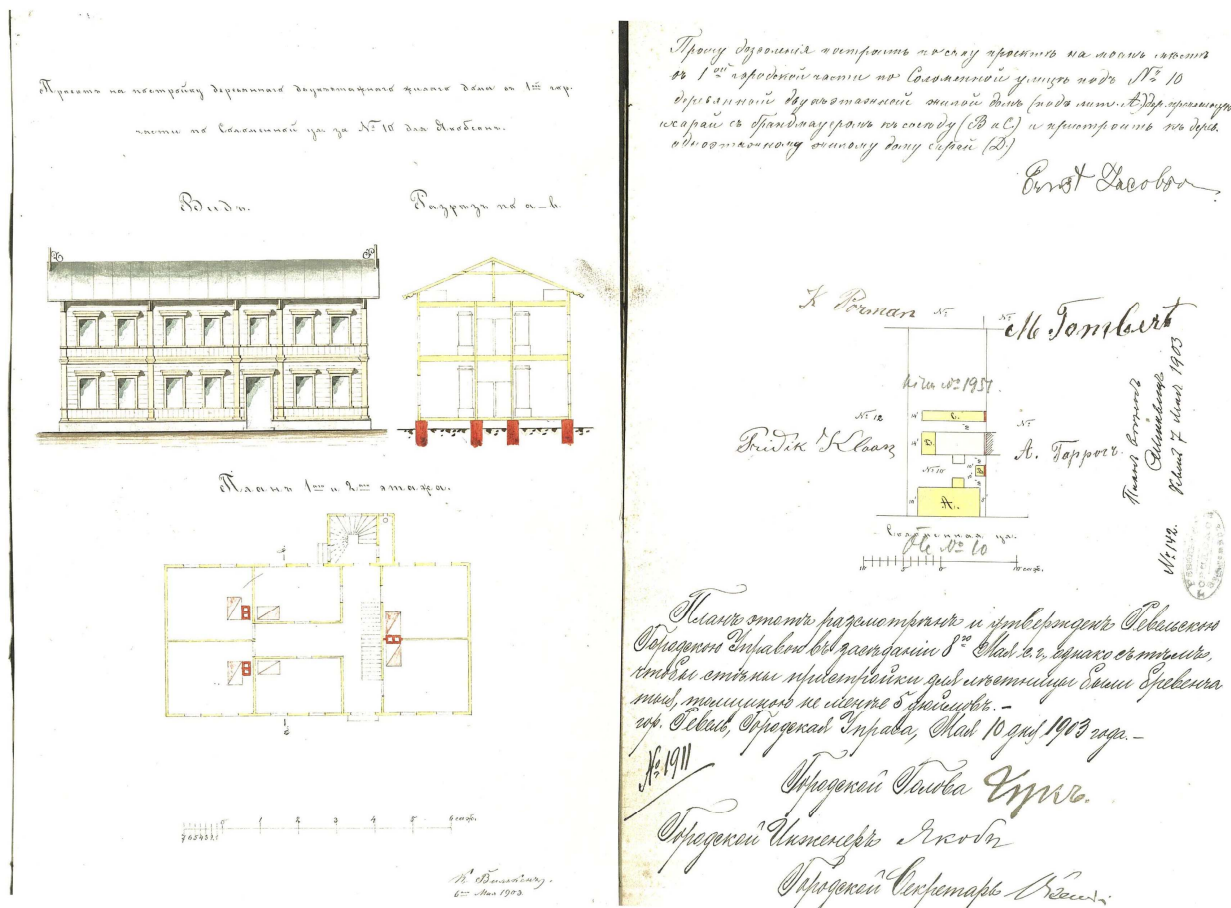 Проектъ на постройку деревяннаго двухэтажнаго жилаго дома въ 1ой гор.
части по Соломенной ул. за № 10 для Якобсонъ.
Видъ.
Разрѣзъ по a–b.
Планъ 1го и 2го этажа.
7 6 5 4 3 2 1 0 1 2 3 4 5 6 саж.
6го Мая 1903
Прошу дозволенія построить по сему проекту на моемъ мѣстѣ
въ 1ой городской части по Соломенной улицѣ подъ № 10
деревянной двухъэтажной жилой домъ (подъ лит. А) дер.
сарай съ брандмауеромъ къ сосѣду (В и С) и пристроить къ дерев.
одноэтажному жилому дому сарай (D.)
Ernst Jacobson
K Pörman №
№
M. Tomberk
№ 1951.
C.
№ 12
№
D.
B
А. Торрогъ.
№ 10
A.
Соломенная ул.
№ 10
10 5 0 10 саж.
7 Мая 1903
№ 142.
Планъ этотъ разсмотрѣнъ и утвержденъ Ревельскою
Городскою Управою въ засѣданіи 8го Мая с.г., однако съ тѣмъ,
чтобы стѣны пристройки для лѣстницы были бревенча
тыя, толщиною не менѣе 5 дюймовъ.–
гор. Ревель, Городская Управа, Мая 10 дня 1903 года.–
№ 1911
Городской Голова
Городской Инженеръ Якоби
Городской Секретарь